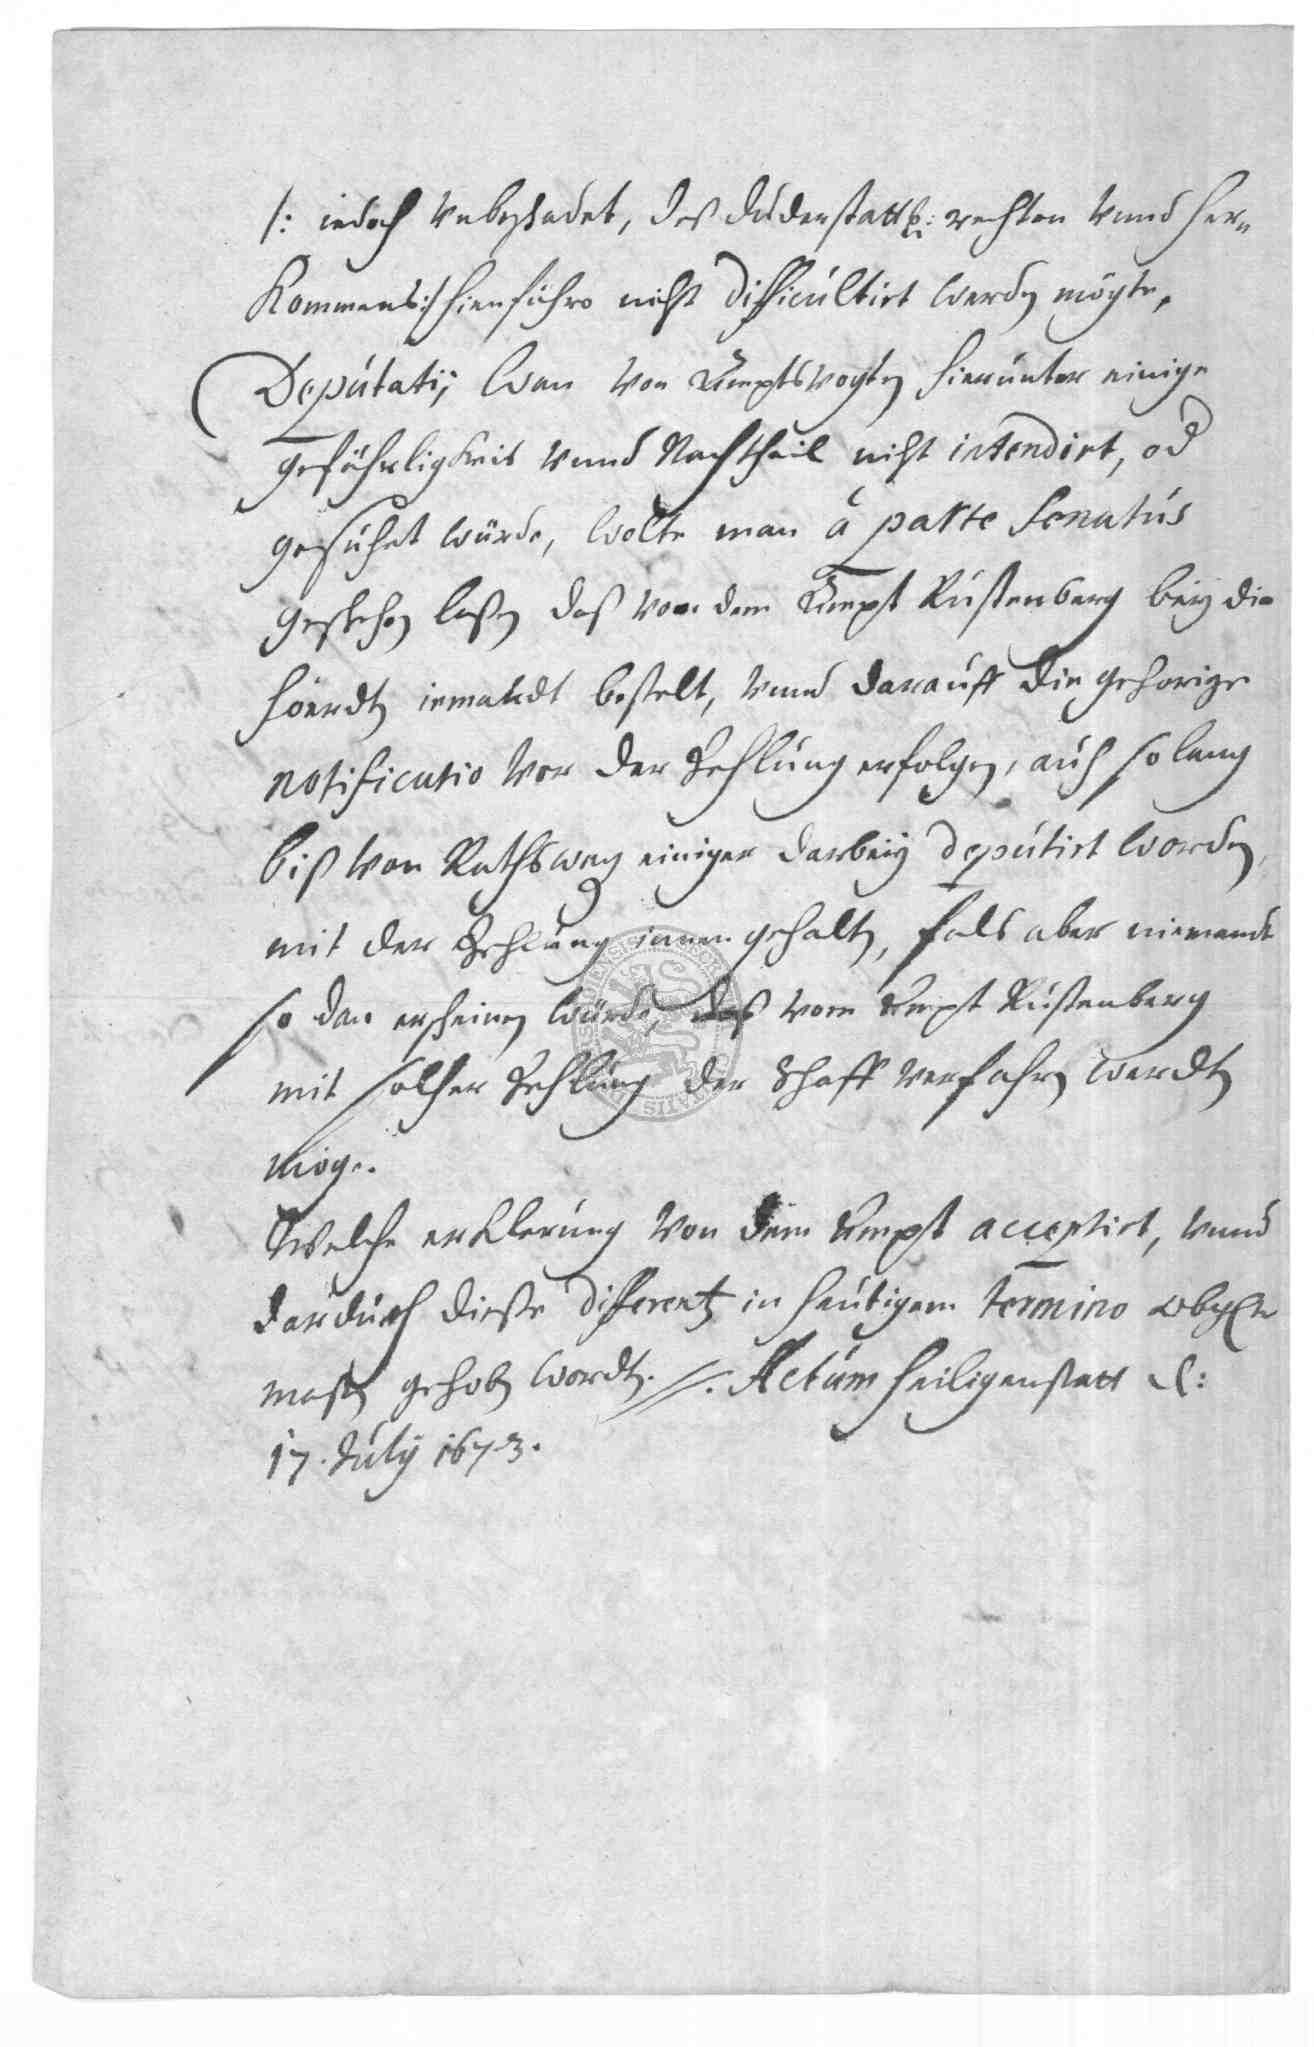 /: iedoch vnbeschadet, des duderstattsch: rechten vnnd her„
Kommens :/ hienführo nicht difficultirt werden mögte,
Deputati, wan von Ampts wegen hierunter einige
gefährligkeit vnnd Nachtheil nicht intendirt, od
gesucht würde, wolte man à parte Senatus
geschehen laßen daß von dem Ampt Rustenberg bey die
hoerdten iemandt bestelt, vnnd darauff die gehorige
notificatio vor der Zehlung erfolgen, auch so lang
biß von Raths weg einiger darbey deputirt worden,
mit der Zehlung innen gehalten, fals aber niemandt
so dan erscheinen würde, das vom Ampt Rustenberg
mit solcher Zehlung der Schaff verfahren werdten
möge.
Welche erklerung von dem Ampt acceptirt, vnnd
dardurch dieße differentz in heutigem termino
maßen gehoben wordten. //. Actum Heiligenstatt d:
17. July 1673.